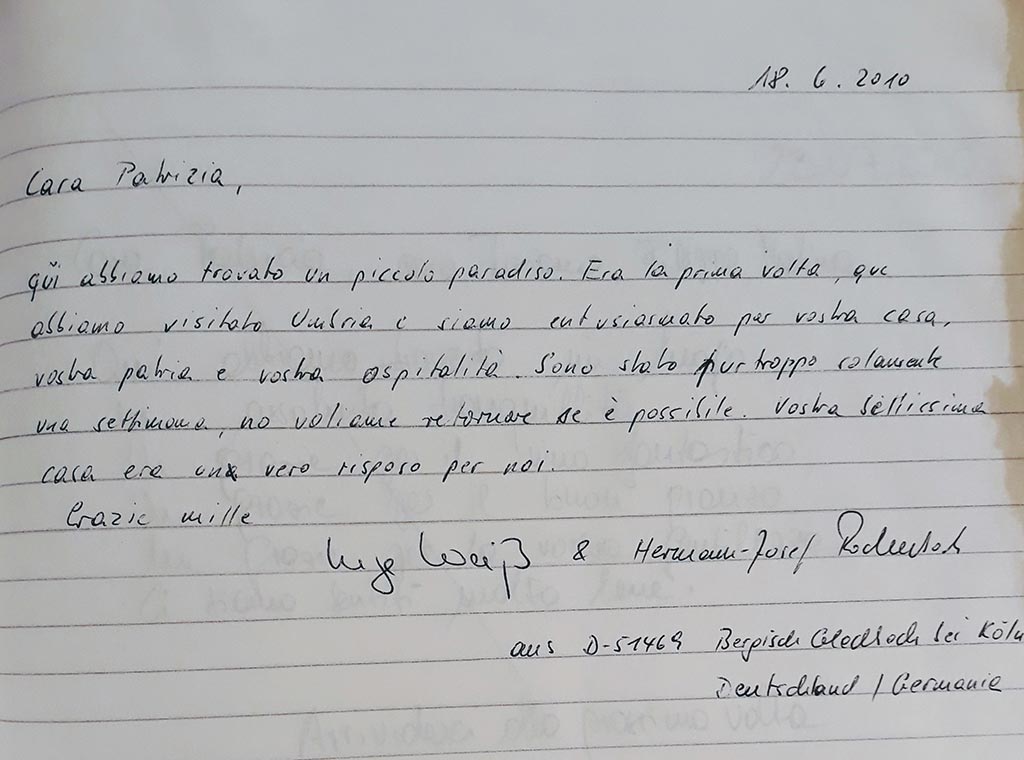 18. 6. 2010
Cara Patrizia,
qui abbiamo trovato un piccolo paradiso. Era la prima volta, que
abbiamo visitato Umbria e siamo entusiasmato per vostra casa,
vostra patria e vostra ospitalità. Sono stato purtroppo solamente
una settimona, no voliame retornare se è possibile. Vostra bellissima
casa era un vero risposo per noi.
Grazie mille
Inge Weiß & Hermann-Josef
aus D-51469 Bergisch Gladbach bei Köln
Deutschland / Germania
Arrividera alla prossima volta